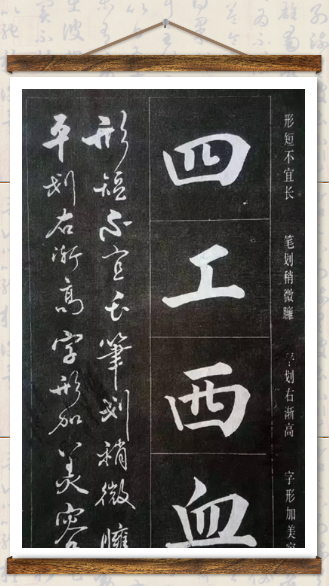 形短不宜长 笔划稍微臃 平划右渐高 字形加美容
四
工
西
血
形短不宜长筆划稍微臃
平划右渐高字形加美容